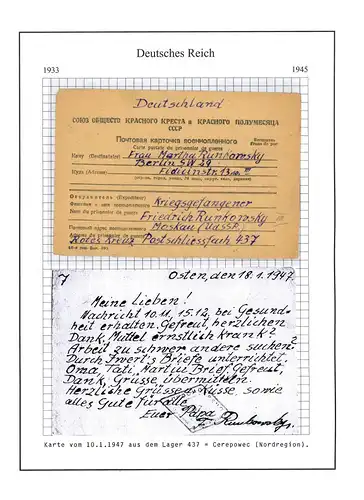 Deutsches Reich
1933 1945
Deutschland
СОЮЗ ОБЩЕСТВ КРАСНОГО КРЕСТА и КРАСНОГО ПОЛУМЕСЯЦА
СССР
Почтовая карточка военнопленного
Carte postale du prisonnier de guerre
Кому (Destinataire) Frau Martha Runkowsky
Berlin SW 29
Куда (Adresse) Fidicinstr. 13
Отправитель (Expéditeur)
Фамилия и имя военнопленного Kriegsgefangener
Nom du prisonnier de guerre Friedrich Runkowsky
Почтовый адрес военнопленного Moskau (UdSSR)
Adresse du prisonnier de guerre Rotes Kreuz Postschliessfach 437
7 Osten, den 18.1.1947
Meine Lieben!
Nachricht 10.11, 15.12, bei Gesund-
heit erhalten. Gefreut, herzlichen
Dank, Muttel ernstlich krank?
Arbeit zu schwer andere suchen?
Durch Briefe unterrichtet,
Oma, Tati, Brief, Gefreut,
Dank, Grüsse übermitteln.
Herzliche Grüsse u. Küsse, sowie
alles Gute für alle
Euer Papa
Runkowsky
Karte vom 10.1.1947 aus dem Lager 437 = Cerepowec (Nordregion).